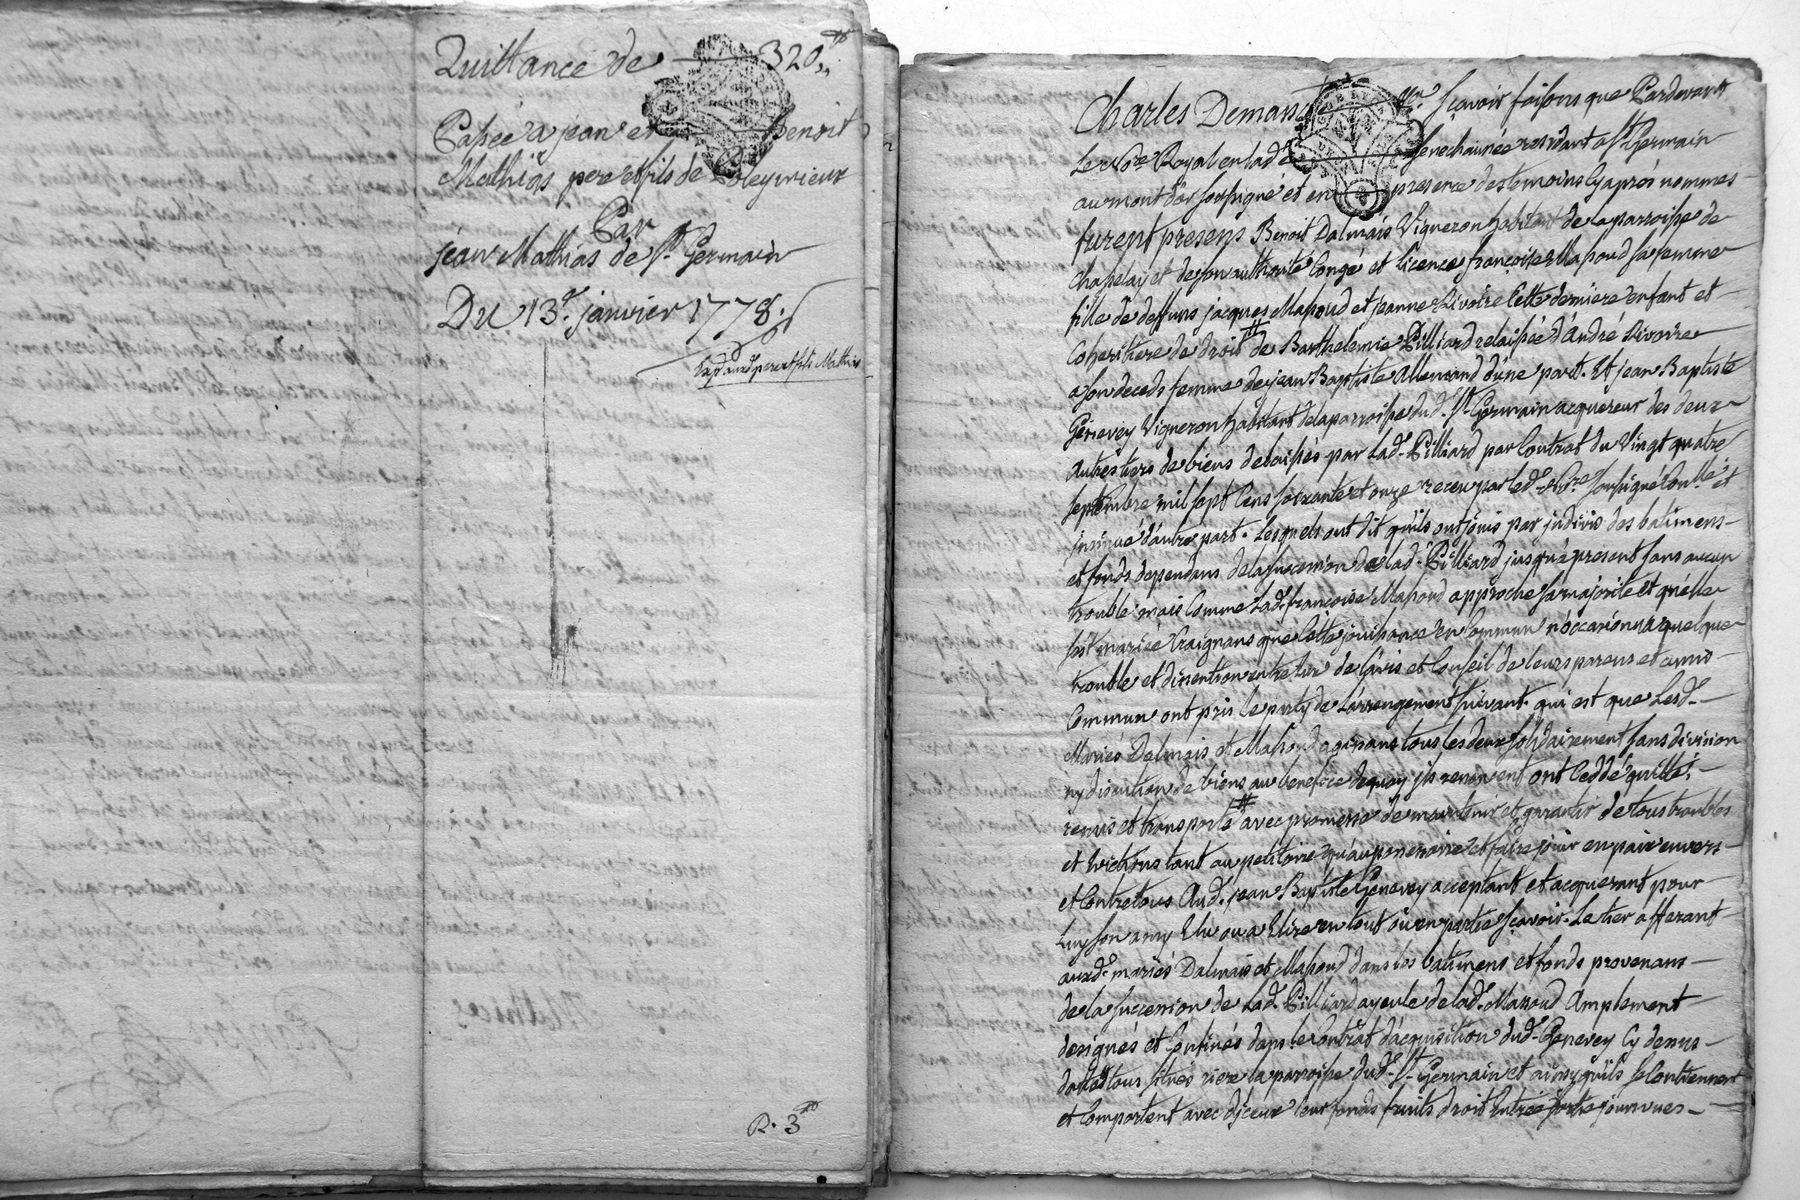 Quittance de 320₶
Passée a jean et Benoit
Mathias pere et fils de Poleymieux
Par
jean Mathias de St. Germain
Du 13e. janvier 1778.
Exp. aux d. pere et fils Mathias
R. 3₶
Charles Demans Sçavoir faisons que Pardevant
Le Nore. Royal en lad. Senechaussée residant a St. Germain
au mont d'or soussigné et en presence des temoins cy après nommés
furent presens Benoit Dalmais Vigneron habitant de la parroisse de
Chasselay et de son authorité Congé et licence françoise Mazoud sa femme
fille de deffuns jacques Mazoud et jeanne Rivoire Cette derniere enfant et
Coheritiere de droit de Barthelemie Pilliard relaissée d'André Rivoire
a son deceds femme de jean Baptiste Allemand d'une part. Et jean Baptiste
Genevey Vigneron habitant de la parroisse dud. St. Germain acquereur des deux
autres tiers de biens delaissés par Lad. Pilliard par Contrat du Vingt quatre
septembre mil sept Cens soixante et onze receu par led. Nore. soussigné Conllé et
insinué d'autre part. Lesquels ont dit qu'ils ont jouis par jndivis des batimens
et fonds dependans de la succession de lad. Pilliard jusqu'a present sans aucun
trouble mais Comme Lad. françoise Mazoud approche sa majorité et qu'elle
s'est mariée Craignans que Cette jouissance en Commun n'occasionna quelque
trouble et dissention entre eux de l'avis et Conseil de leurs parens et amis
Commun ont pris le party de L'arrengement suivant. qui est que Lesd.
Mariés Dalmais et Mazoud agissans tous les deux solidairement sans division
ny discution de biens au benefice de quoy jls renoncent ont Ceddé quitté
remis et transporté avec promesse de maintenir et garantir de tous troubles
et Evictions tant au petitoire qu'au possessoire et faire jouir en paix envers
et Contre tous Aud. jean Baptiste Genevey acceptant et acquerant pour
Luy son amy Elu ou a Elire en tout ou en partie sçavoir. Le tier afferant
auxd. mariés Dalmais et Mazoud dans les batimens et fonds provenans
de la succession de Lad. Pilliard ayeule de lad. Mazoud Amplement
designés et Confinés dans le Contrat d'acquisition dud. Genevey Cy dessus
datté tous situés riere la parroisse dud. St. Germain et ainsy qu'ils se Contiennent
et Comportent avec d'jceux leur fonds fruits droit Entrée sortie jours vues